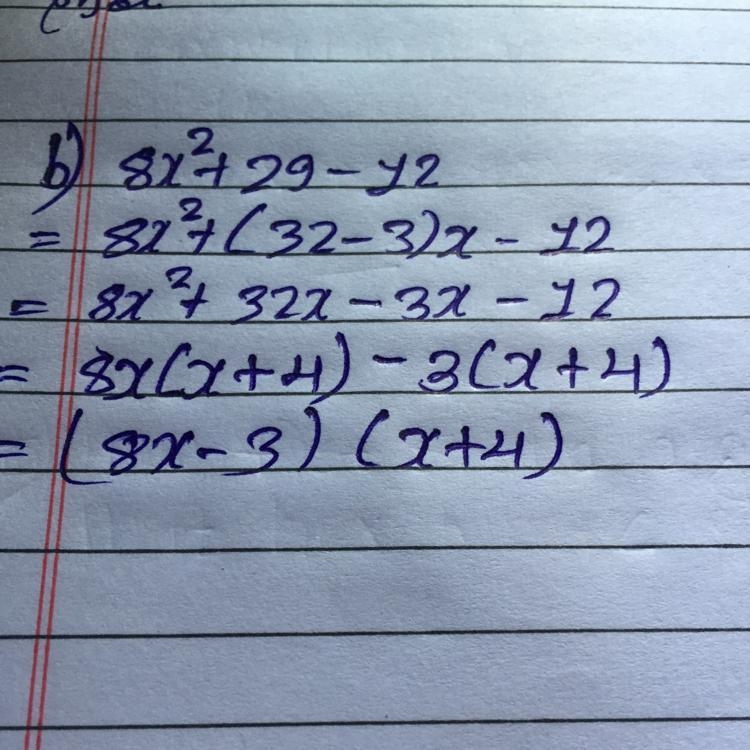 b) 8x²+29-12
= 8x²+(32-3)x-12
= 8x²+32x-3x-12
= 8x(x+4)-3(x+4)
= (8x-3)(x+4)